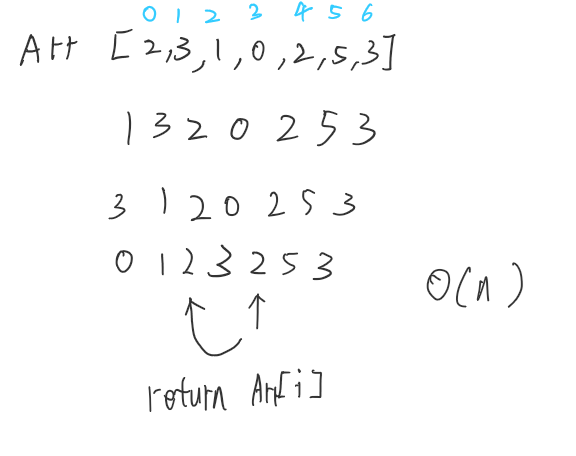 0 1 2 3 4 5 6
Arr [2,3,1,0,2,5,3]
1 3 2 0 2 5 3
3 1 2 0 2 5 3
0 1 2 3 2 5 3
O(n)
return Arr[i]